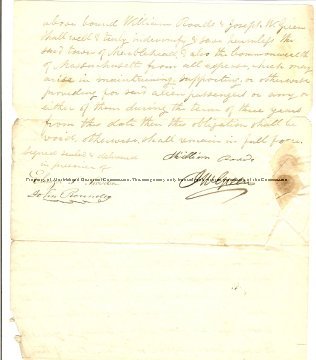 above bound William Roads & Joseph W Green
shall well & truly indemnify & save harmless the
said town of Marblehead, & also the Commonwealth
of Massachusetts from all expense, which may
arise in maintaining, supporting, or otherwise
providing for said alien passengers or any, or
either of them during the term of three years
from this date then the obligation shall be
void, otherwise, shall remain in full force.
Signed sealed & delivered
in presence of
William Roads
J W Green
Property of Marblehead Historical Commission. This image may only be used with permission of the Commission
John Roundey